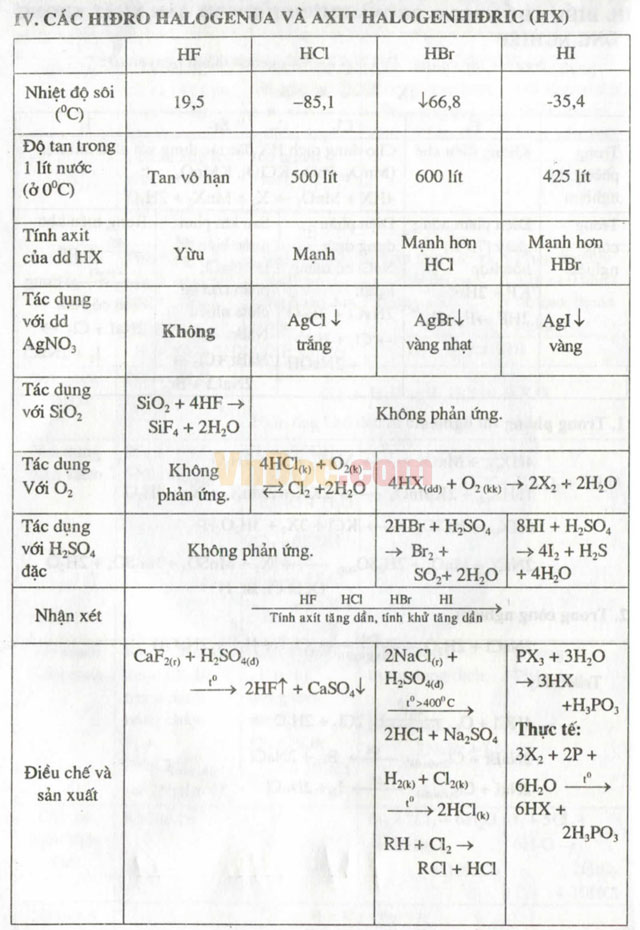 IV. CÁC HIĐRO HALOGENUA VÀ AXIT HALOGENHIĐRIC (HX)
HF HCl HBr HI
Nhiệt độ sôi
(⁰C)
19,5 –85,1 ↓66,8 -35,4
Độ tan trong
1 lít nước
(ở 0⁰C)
Tan vô hạn 500 lít 600 lít 425 lít
Tính axit
của dd HX
Yừu Mạnh
Mạnh hơn
HCl
Mạnh hơn
HBr
Tác dụng
với dd
AgNO₃
Không
AgCl↓
trắng
AgBr↓
vàng nhạt
AgI↓
vàng
Tác dụng
với SiO₂
SiO₂ + 4HF →
SiF₄ + 2H₂O
Không phản ứng.
Tác dụng
Với O₂
Không
phản ứng.
4HCl(k) + O₂(k)
⇌ Cl₂ + 2H₂O
4HX(dd) + O₂(k) → 2X₂ + 2H₂O
Tác dụng
với H₂SO₄
đặc
Không phản ứng.
2HBr + H₂SO₄
→ Br₂ +
SO₂+ 2H₂O
8HI + H₂SO₄
→ 4I₂ + H₂S
+ 4H₂O
Nhận xét
HF HCl HBr HI
Tính axit tăng dần, tính khử tăng dần
Điều chế và
sản xuất
CaF₂(r) + H₂SO₄(đ)
t⁰→ 2HF↑ + CaSO₄↓
2NaCl(r) +
H₂SO₄(đ)
t⁰>400⁰C→
2HCl + Na₂SO₄
H₂(k) + Cl₂(k)
t⁰→ 2HCl(k)
RH + Cl₂ →
RCl + HCl
PX₃ + 3H₂O
→ 3HX
+H₃PO₃
Thực tế:
3X₂ + 2P +
6H₂O t⁰→
6HX +
2H₃PO₃
VnDoc.com